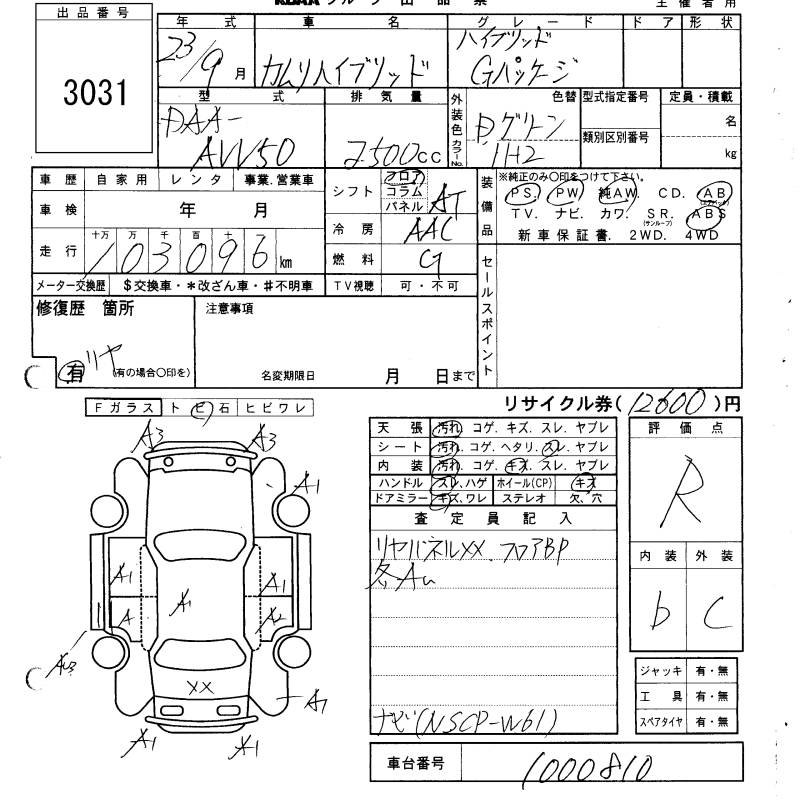 KCAA グループ 出 品 票
主 催 者 用
出 品 番 号
3031
年 式
車 名
グ レ ー ド
ド ア
形 状
23/9 月
カムリハイブリッド
ハイブリッド
Gパッケージ
型 式
排 気 量
外装色
カラーNo.
色替
型式指定番号
定員・積載
DAA-
AVV50
2500cc
Dグリーン
1H2
類別区別番号
名
kg
車 歴
自 家 用
レ ン タ
事業.営業車
シフト
フロア
コラム
パネル
AT
装備品
※純正のみ〇印をつけて下さい。
PS. PW. 純AW. CD. AB
(エアバッグ)
TV. ナビ. カワ. SR. ABS
(サンルーフ)
新 車 保 証 書. 2WD. 4WD
車 検
年 月
冷 房
AAC
走 行
十万 万 千 百 十
103096 km
燃 料
G
メーター交換歴
$交換車・*改ざん車・#不明車
TV視聴
可 ・ 不 可
セールスポイント
修復歴 箇所
注意事項
有 リヤ
(有の場合〇印を)
名変期限日
月 日まで
リサイクル券( 12600 )円
Fガラス
ト ビ 石
ヒ ビ ワ レ
天 張
汚れ. コゲ. キズ. スレ. ヤブレ
シ ー ト
汚れ. コゲ. ヘタリ. スレ. ヤブレ
内 装
汚れ. コゲ. キズ. スレ. ヤブレ
ハンドル
スレ.ハゲ
ホイール(CP)
キズ
ドアミラー
キズ.ワレ
ステレオ
欠. 穴
評 価 点
R
内 装
外 装
b
C
査 定 員 記 入
リヤパネルXX. フロアBP
各Au
ナビ(NSCP-W61)
A3
A3
A1
A1
A1
A1
A
A2
XX
A1
A1
A1
ジャッキ
有・無
工 具
有・無
スペアタイヤ
有・無
車台番号
1000810